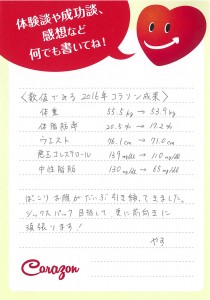 体験談や成功談、
感想など
何でも書いてね！
〈数値でみる 2016年コラソン成果〉
体重 55.5kg → 53.9kg
体脂肪率 20.5% → 17.2%
ウエスト 76.1cm → 71.0cm
悪玉コレステロール 139mg/dl → 110mg/dl
中性脂肪 130mg/dl → 65mg/dl
ぽっこりお腹がだいぶ引き締ってきました。
シックスパック目指して、更に前向きに
頑張ります！
やす
Corazon